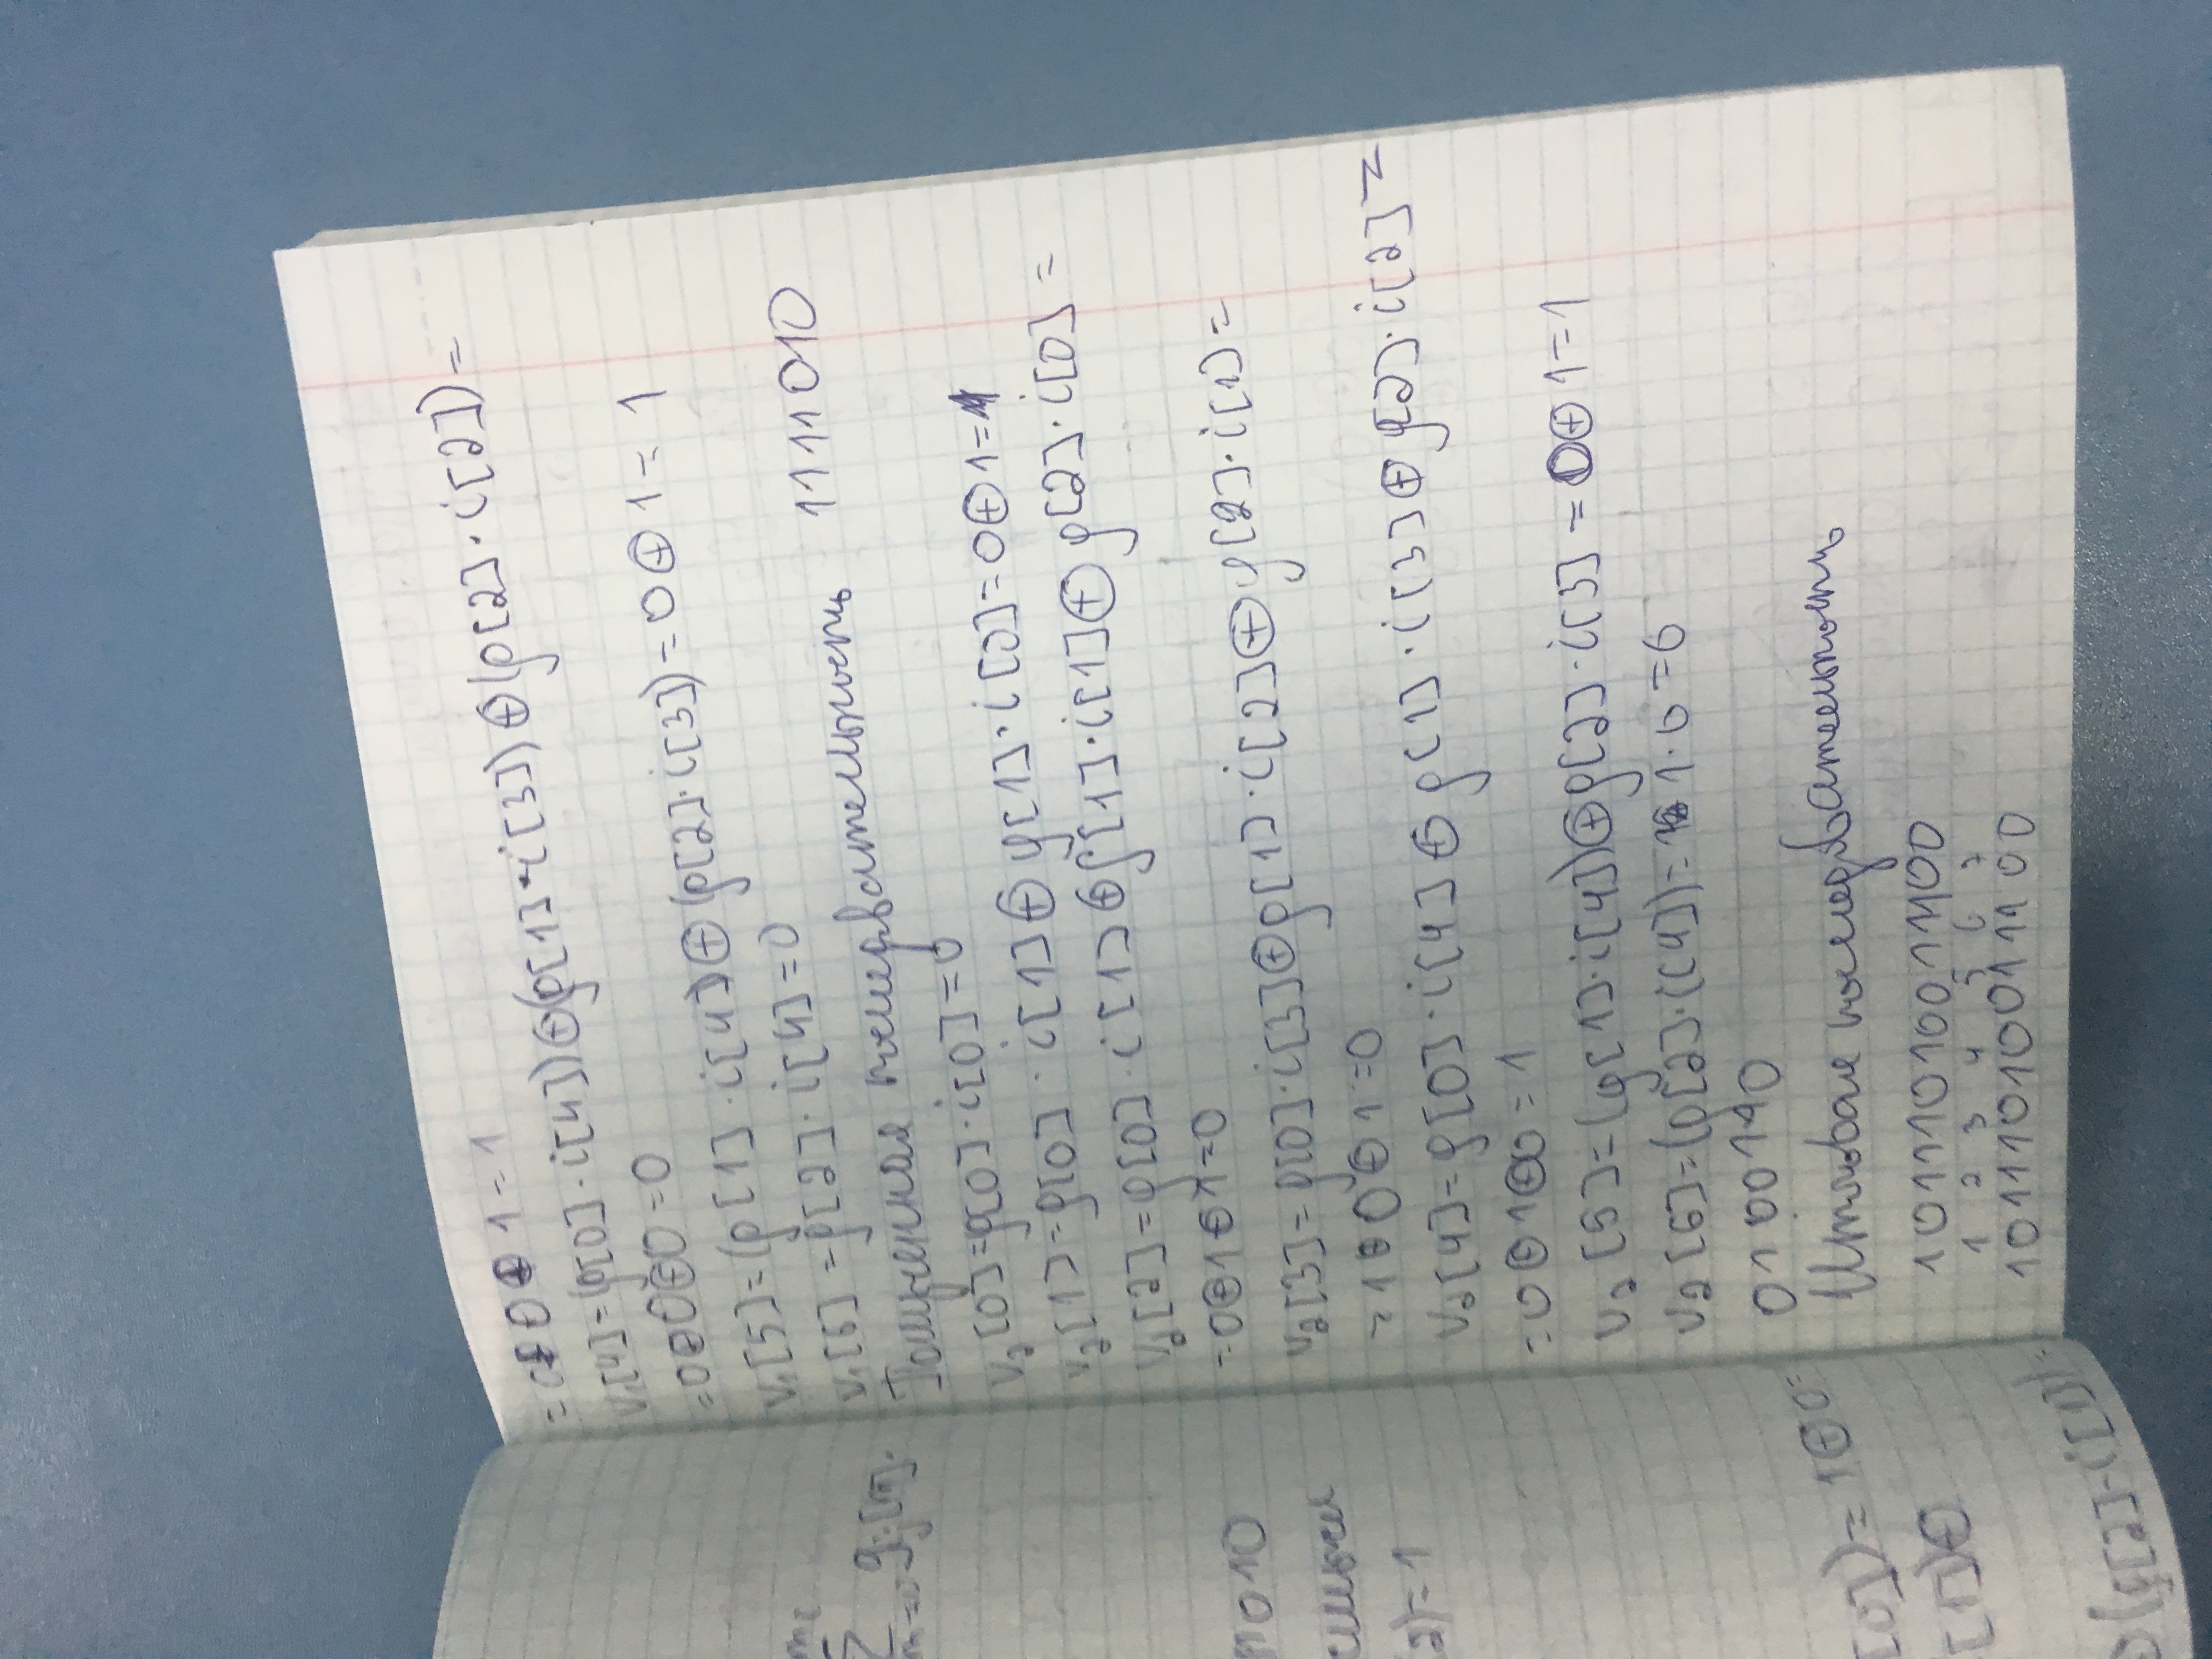 m2
Σ gj[m].
m=0
11010
2)=1
[0])=1⊕0=
[1])⊕
⊕(g[2]·i[1])=
=0⊕0⊕1=1
v1[4]=(g[0]·i[4])⊕(g[1]·i[3])⊕(g[2]·i[2])=
=0⊕0⊕0=0
v1[5]=(g[1]·i[4])⊕(g[2]·i[3])=0⊕1=1
v1[6]=g[2]·i[4]=0
Полученная последвательность 1111010
v2[0]=g[0]·i[0]=0
v2[1]=g[0]·i[1]⊕g[1]·i[0]=0⊕1=1
v2[2]=g[0]·i[1]⊕g[1]·i[1]⊕g[2]·i[0]=
=0⊕1⊕1=0
v2[3]=g[0]·i[3]⊕g[1]·i[2]⊕g[2]·i[1]=
=1⊕0⊕1=0
v2[4]=g[0]·i[4]⊕g[1]·i[3]⊕g[2]·i[2]=
=0⊕1⊕0=1
v2[5]=(g[1]·i[4])⊕g[2]·i[3]=0⊕1=1
v2[6]=(g[2]·i[4])=1·0=0
0100110
Итоговая последвательность
10111010011100
1 2 3 4 5 6 7
10111010011100